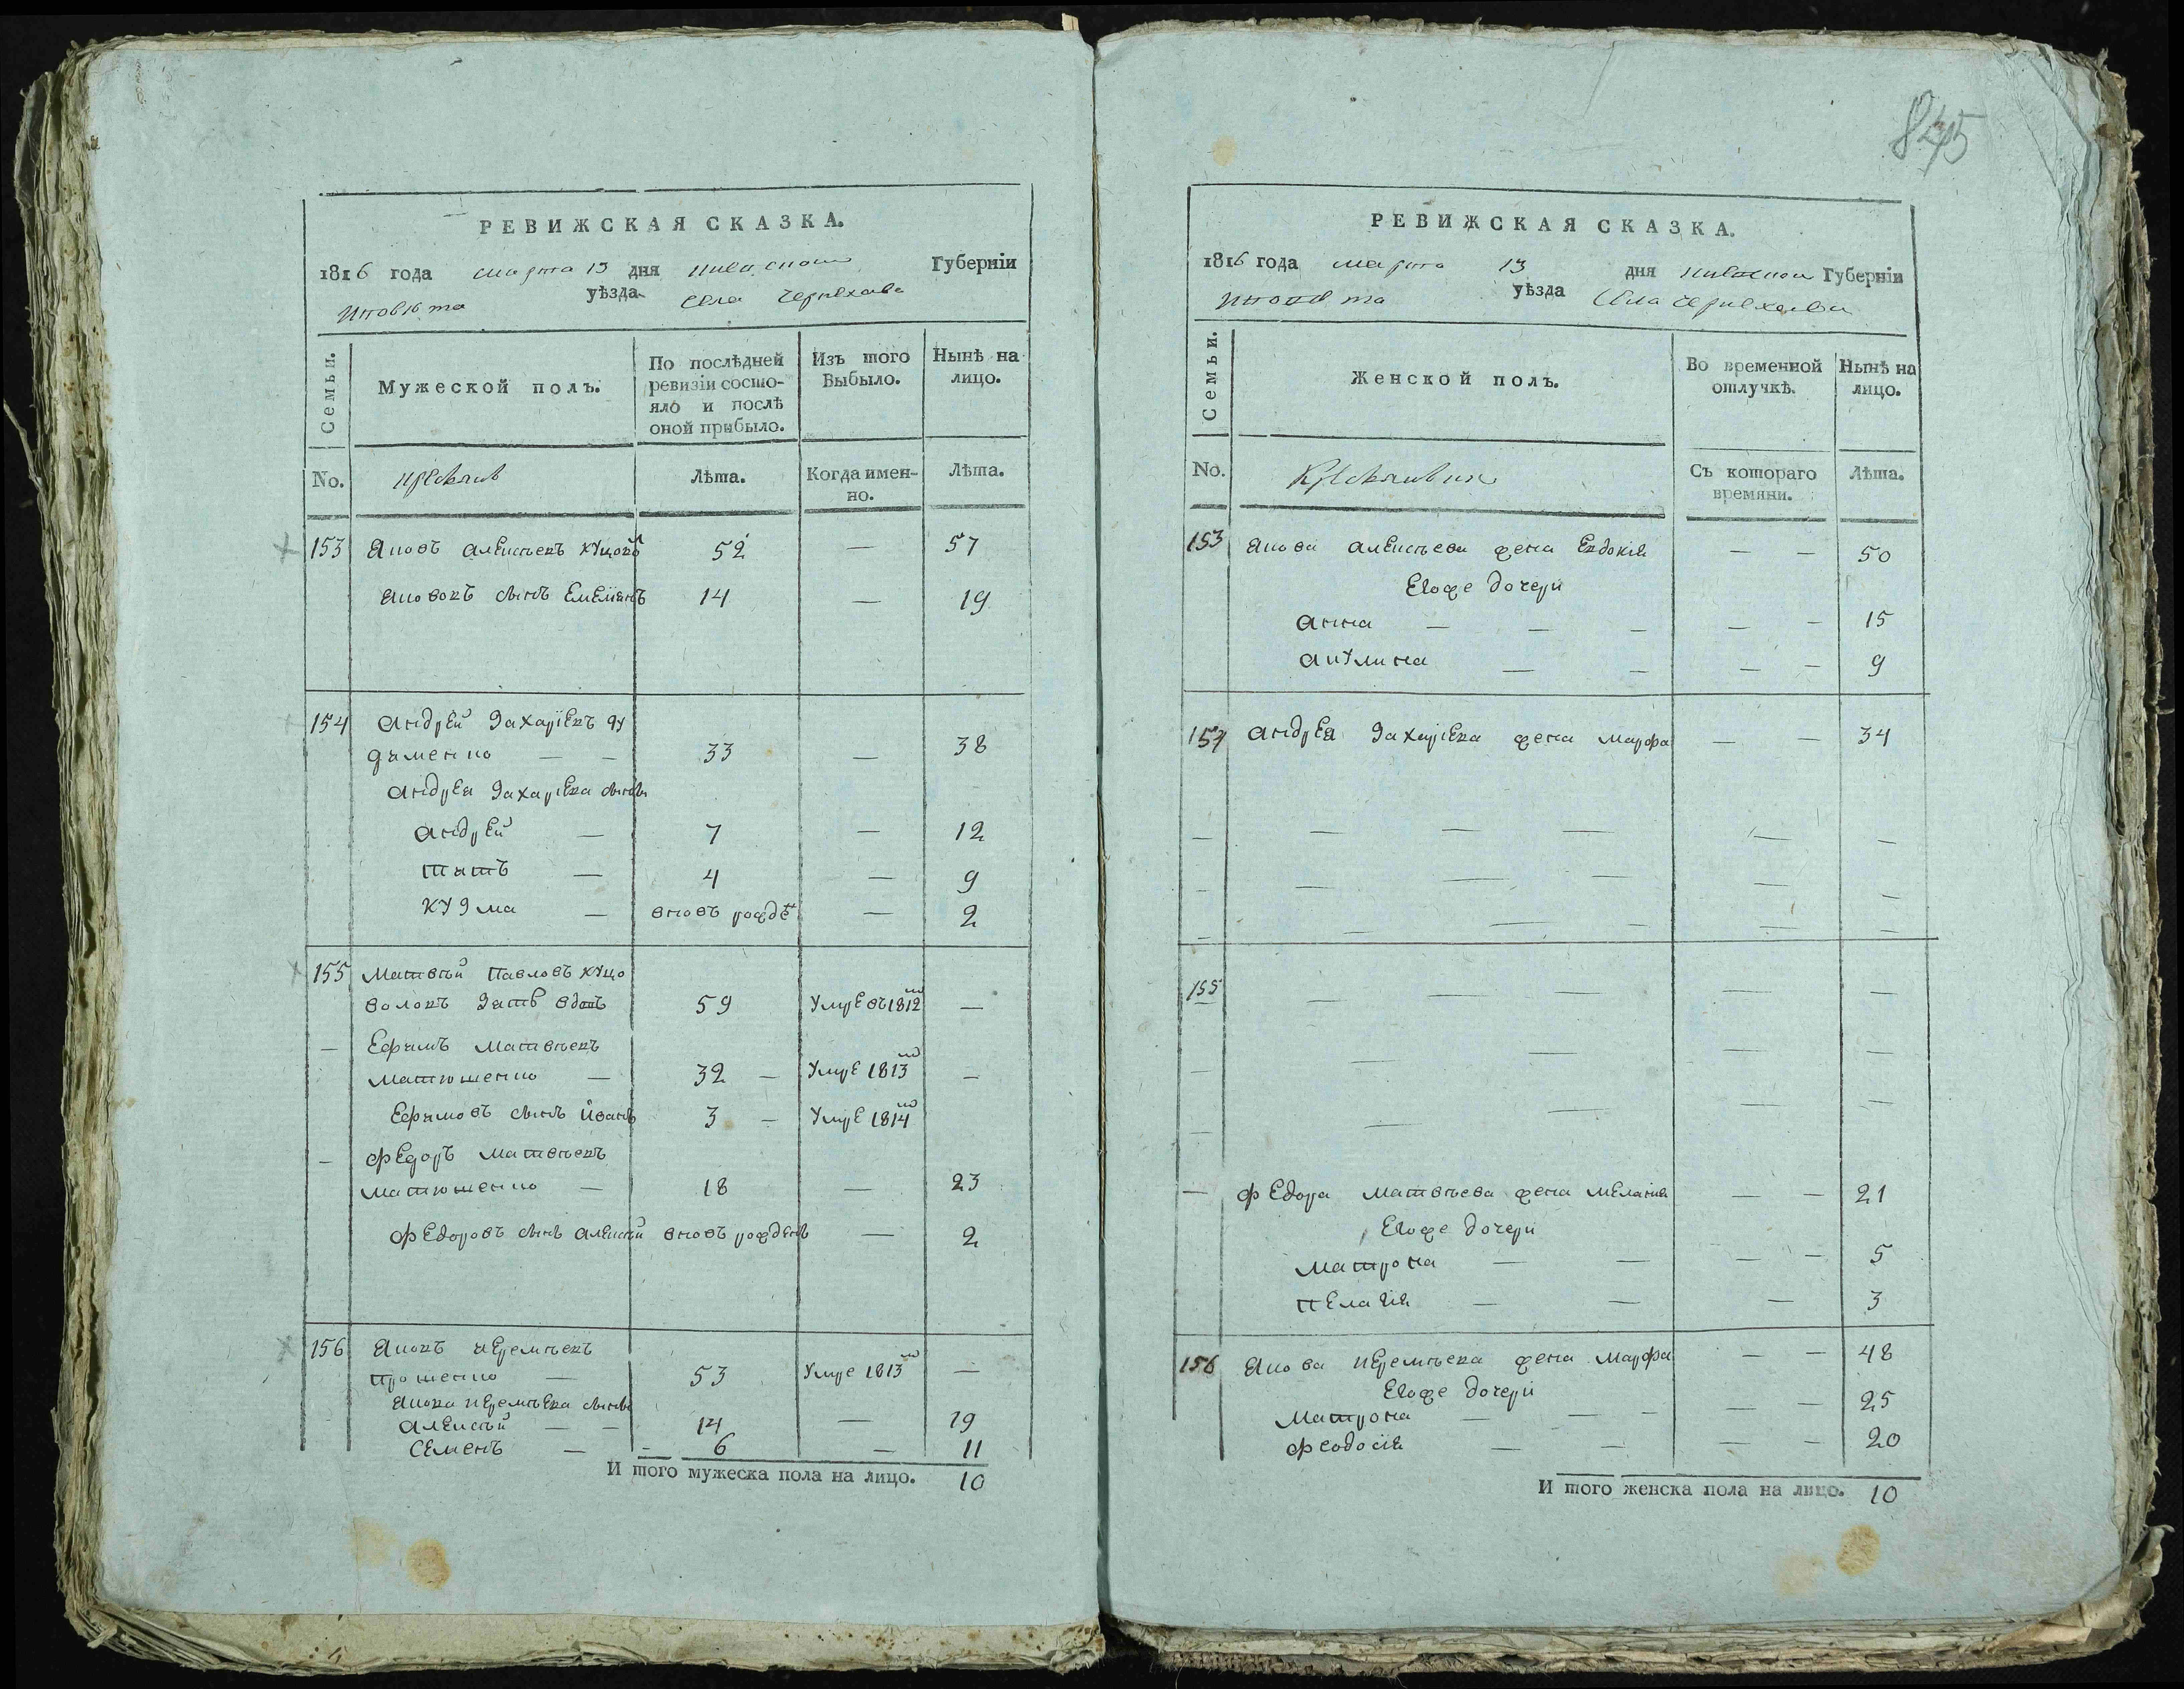 РЕВИЖСКАЯ СКАЗКА.
1816 года марта 13 дня Киевской Губерніи
уѣзда села Черняхова
Мужеской полъ.
Семьи.
По послѣдней ревизіи состояло и послѣ оной прибыло.
Изъ того Выбыло.
Нынѣ на лицо.
No.
Лѣта.
Когда именно.
Лѣта.
153 Яковъ Алексѣевъ 52 — 57
Яковавъ сынъ Емельянъ 14 — 19
154 Андрей Захаріевъ
33 — 38
Андрея Захаріева сыновья
Андрей — 7 — 12
Титъ — 4 — 9
Кузма — вновь рожде — 2
155 Матвѣй Павловъ
59 Умре въ 1812го —
— Ефимъ Матвѣевъ
Матюшенко — 32 — Умре 1813го —
Ефимовъ сынъ Іванъ 3 — Умре 1814го
— Федоръ Матвѣевъ
Матюшенко — 18 — 23
Федоровъ сынъ Алексѣй вновь рожденъ — 2
156 Яковъ Яремѣевъ
53 Умре 1813го —
Якова Яремѣева сыновья
Алексѣй — — 14 — 19
Семенъ — 6 — 11
И того мужеска пола на лицо. 10
845
РЕВИЖСКАЯ СКАЗКА.
1816 года марта 13 дня Киевской Губерніи
уѣзда села Черняхова
Семьи.
Женской полъ.
Во временной отлучкѣ.
Нынѣ на лицо.
No.
Съ котораго времяни.
Лѣта.
153 Якова Алексѣева жена Евдокія — — 50
Егоже дочери
Анна — — — — — 15
Акулина — — — — 9
154 Андрея Захаріева жена Марфа — — 34
155
— Федора Матвѣева жена Меланія — — 21
Егоже дочери
Матрона — — — — 5
Пелагія — — — 3
156 Якова Яремѣева жена Марфа — — 48
Егоже дочери
Матрона — — — — — 25
Феодосія — — — — 20
И того женска пола на лицо. 10